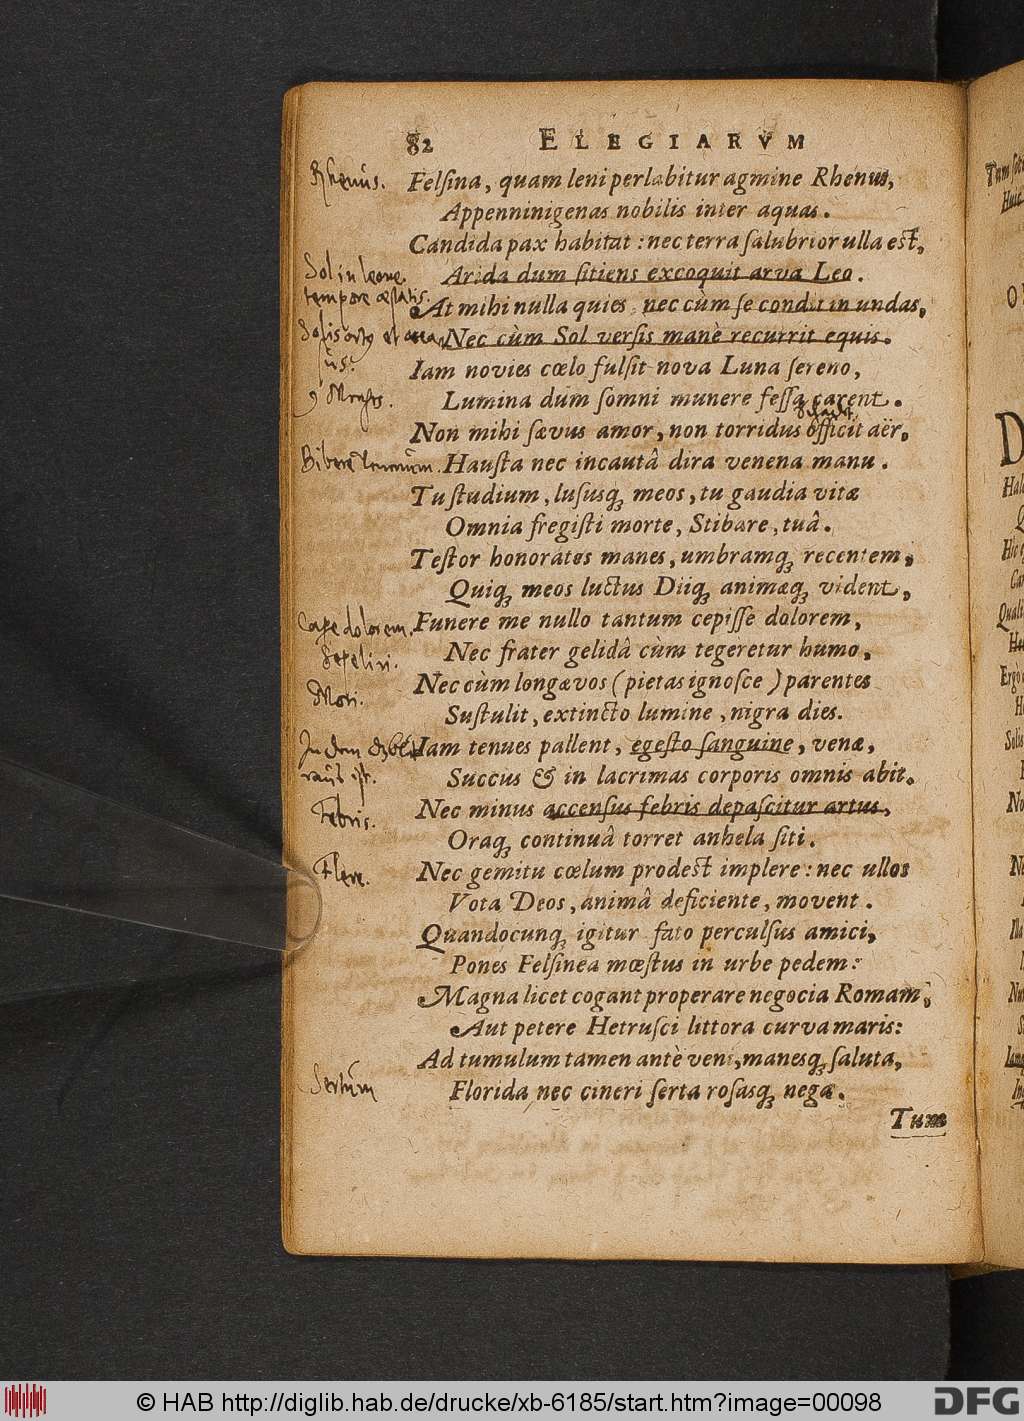 82 ELEGIARVM
Rhenus.
Felſina, quam leni perlabitur agmine Rhenus,
Appenninigenas nobilis inter aquas.
Candida pax habitat: nec terra ſalubrior ulla est,
Sol in leone
tempore æstatis.
Arida dum ſitiens excoquit arva Leo.
At mihi nulla quies, nec cùm ſe condit in undas,
Solis ortus et
Nec cùm Sol verſis manè recurrit equis.
Iam novies cœlo fulſit nova Luna ſereno,
9 Menses.
Lumina dum ſomni munere feſſa carent.
Non mihi ſævus amor, non torridus officit aër,
Bibere venenum.
Hauſta nec incautâ dira venena manu.
Tu ſtudium, luſusq; meos, tu gaudia vitæ
Omnia fregiſti morte, Stibare, tuâ.
Teſtor honoratos manes, umbramq; recentem,
Quiq; meos luctus Diiq; animæq; vident,
Cape dolorem.
Funere me nullo tantum cepiſſe dolorem,
Sepeliri.
Nec frater gelidâ cùm tegeretur humo,
Mori.
Nec cùm longævos (pietas ignoſce) parentes
Suſtulit, extincto lumine, nigra dies.
Iam tenues pallent, egeſto ſanguine, venæ,
Succus & in lacrimas corporis omnis abit.
Febris.
Nec minus accenſus febris depaſcitur artus,
Oraq; continuâ torret anhela ſiti.
Flere.
Nec gemitu cœlum prodest implere: nec ullos
Vota Deos, animâ deficiente, movent.
Quandocunq; igitur fato perculſus amici,
Pones Felſinea mœſtus in urbe pedem:
Magna licet cogant properare negocia Romam,
Aut petere Hetruſci littora curva maris:
Ad tumulum tamen antè veni, manesq; ſaluta,
Sertum
Florida nec cineri ſerta roſasq; nega.
Tum
© HAB http://diglib.hab.de/drucke/xb-6185/start.htm?image=00098
DFG